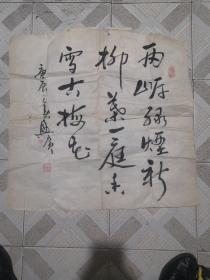 两岸绿煙新
柳葉一庭香
雪古梅花
庚辰